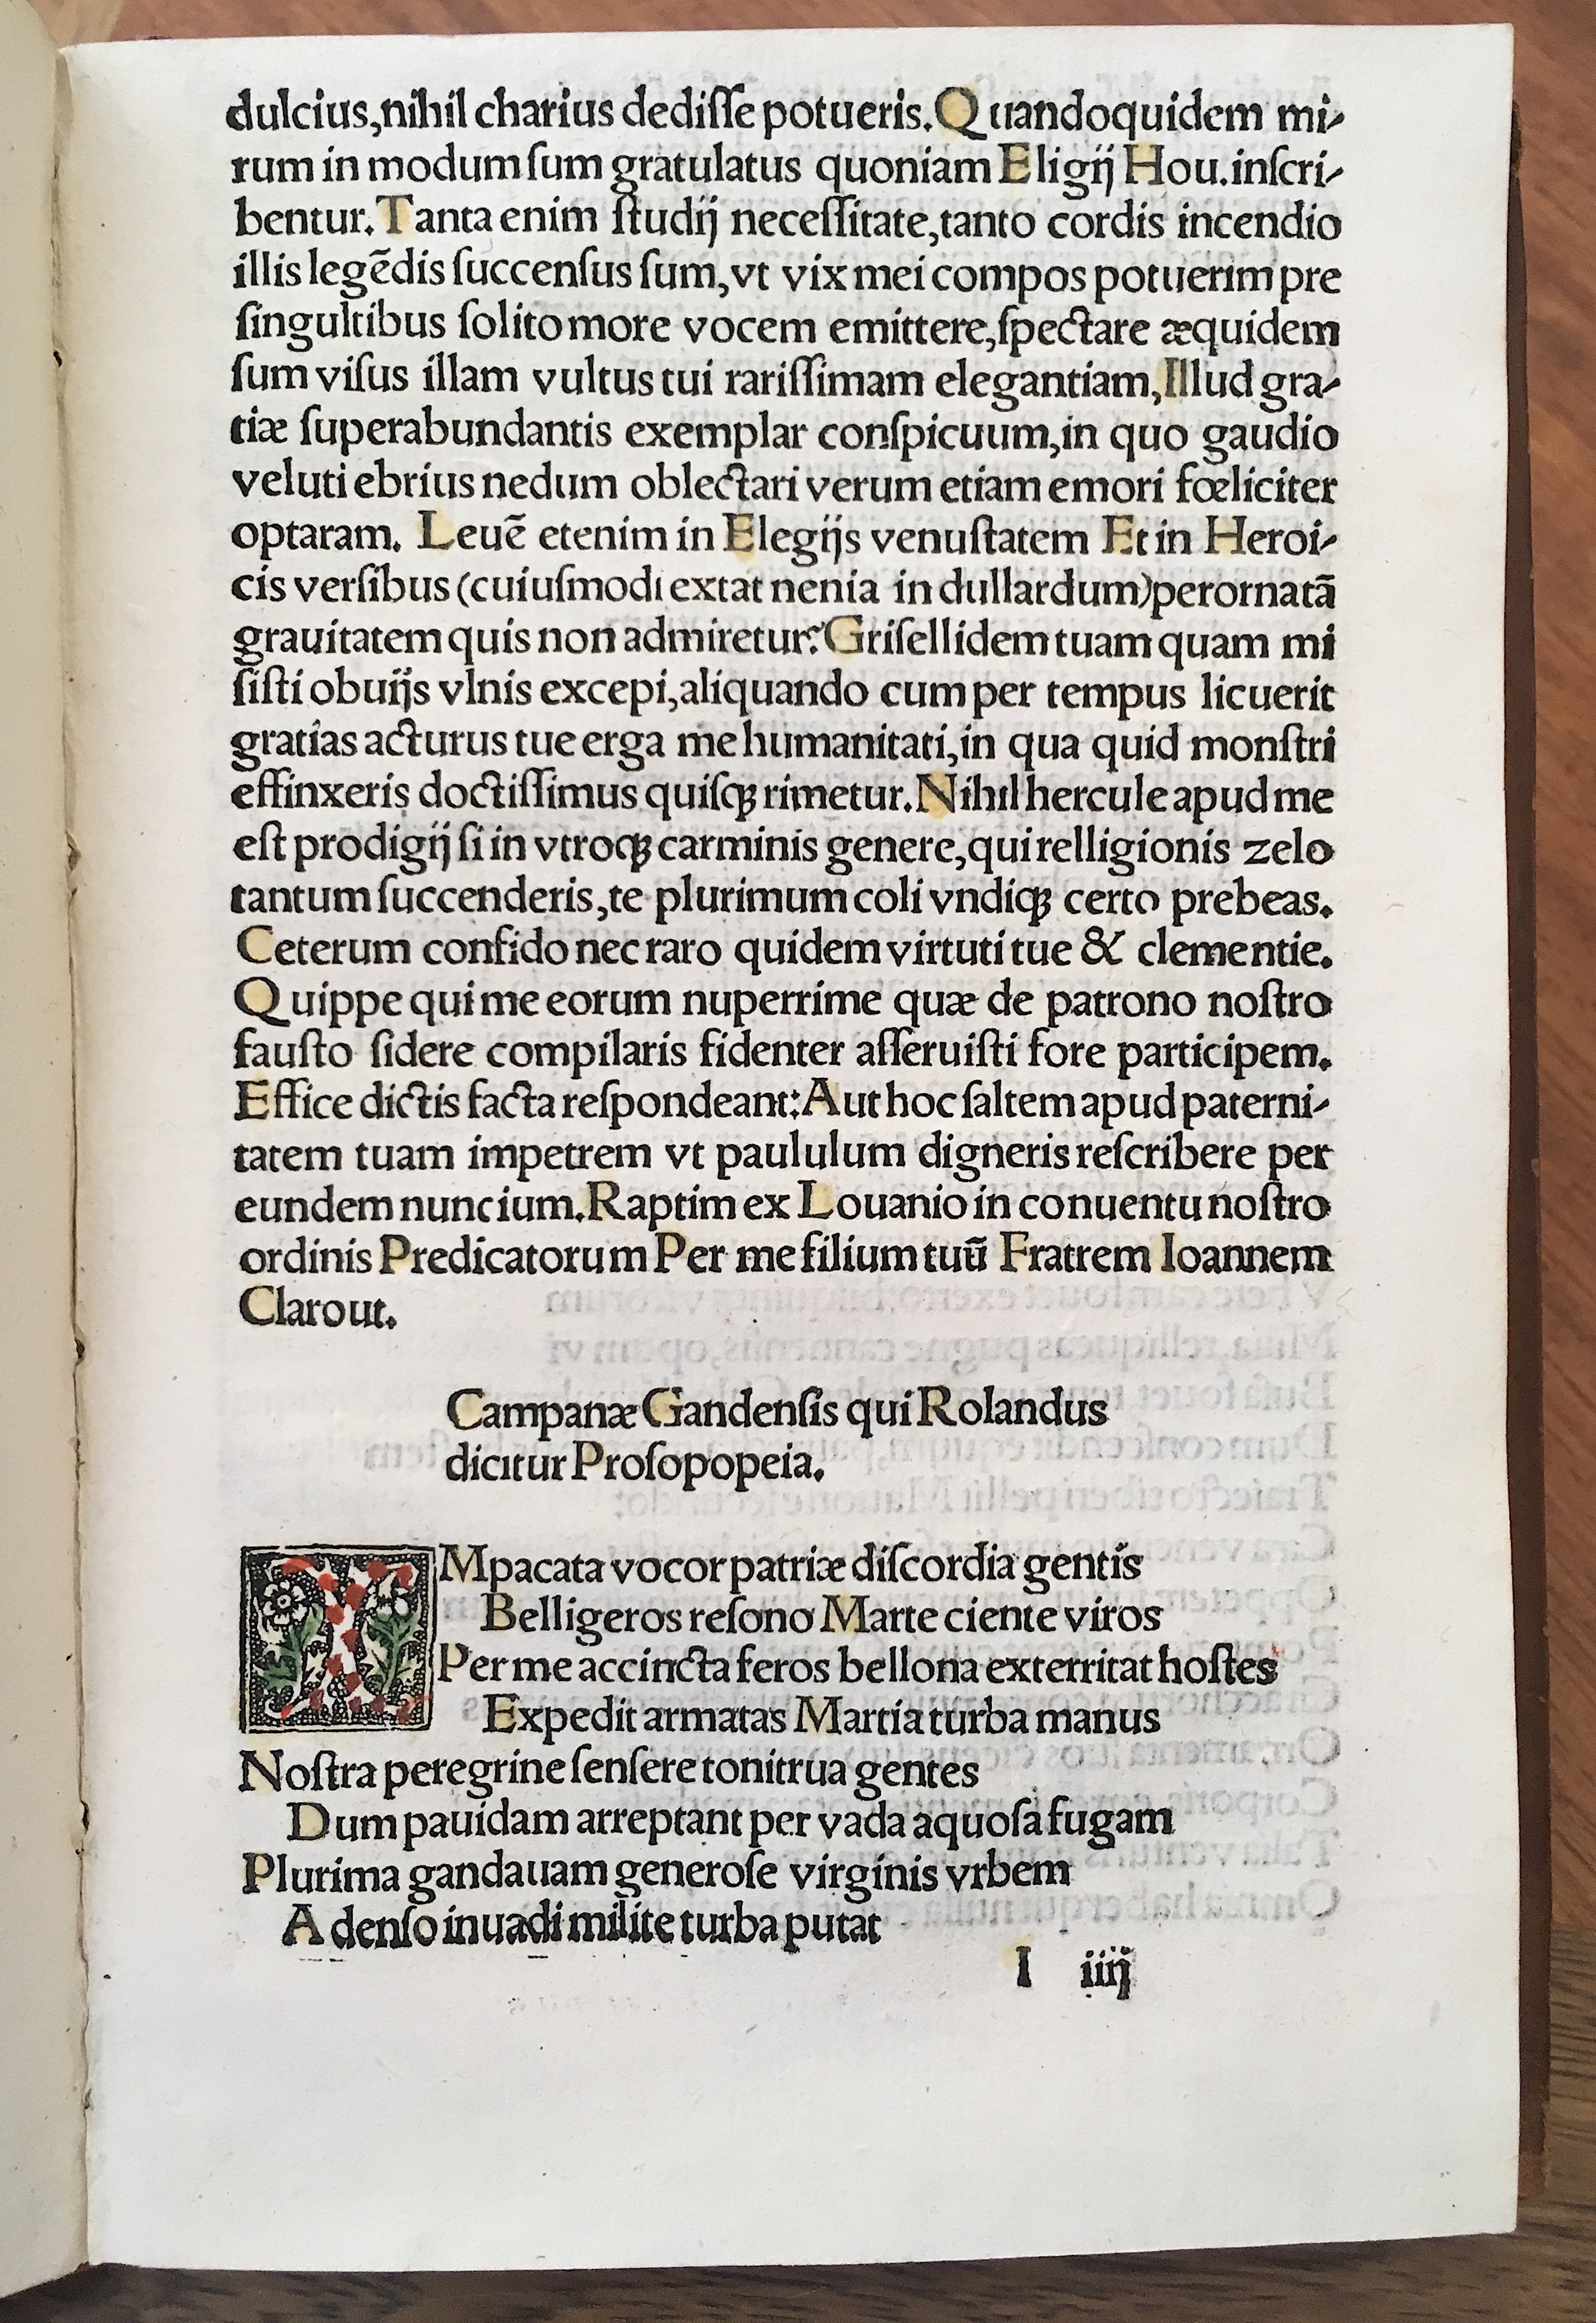 dulcius,nihil charius dediſſe potueris.Quandoquidem mi-
rum in modum ſum gratulatus quoniam Eligij Hou.inſcri-
bentur.Tanta enim ſtudij neceſſitate,tanto cordis incendio
illis legēdis ſuccenſus ſum,vt vix mei compos potuerim pre
ſingultibus ſolito more vocem emittere,ſpectare æquidem
ſum viſus illam vultus tui rariſſimam elegantiam,Illud gra-
tiæ ſuperabundantis exemplar conſpicuum,in quo gaudio
veluti ebrius nedum oblectari verum etiam emori fœliciter
optaram. Leuē etenim in Elegijs venuſtatem Et in Heroi-
cis verſibus (cuiuſmodi extat nenia in dullardum)perornatā
grauitatem quis non admiretur?Griſellidem tuam quam mi
ſiſti obuijs vlnis excepi,aliquando cum per tempus licuerit
gratias acturus tue erga me humanitati,in qua quid monſtri
effinxeris doctiſſimus quiſqꝫ rimetur.Nihil hercule apud me
eſt prodigij ſi in vtroqꝫ carminis genere,qui relligionis zelo
tantum ſuccenderis,te plurimum coli vndiqꝫ certo prebeas.
Ceterum confido nec raro quidem virtuti tue & clementie.
Quippe qui me eorum nuperrime quæ de patrono noſtro
fauſto ſidere compilaris fidenter aſſeruiſti fore participem.
Effice dictis facta reſpondeant:Aut hoc ſaltem apud paterni-
tatem tuam impetrem vt paululum digneris reſcribere per
eundem nuncium.Raptim ex Louanio in conuentu noſtro
ordinis Predicatorum Per me filium tuū Fratrem Ioannem
Clarout.
Campanæ Gandenſis qui Rolandus
dicitur Proſopopeia.
IMpacata vocor patriæ diſcordia gentis
Belligeros reſono Marte ciente viros
Per me accincta feros bellona exterritat hoſtes
Expedit armatas Martia turba manus
Noſtra peregrine ſenſere tonitrua gentes
Dum pauidam arreptant per vada aquoſa fugam
Plurima gandauam generoſe virginis vrbem
A denſo inuadi milite turba putat
I iiij